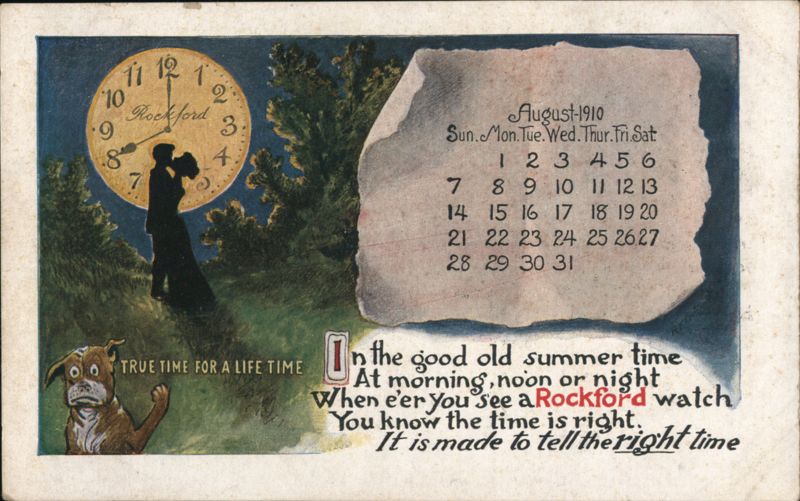 12
11
1
10
2
Rockford
9
3
8
4
7
August-1910
Sun. Mon. Tue. Wed. Thur. Fri. Sat.
1 2 3 4 5 6
7 8 9 10 11 12 13
14 15 16 17 18 19 20
21 22 23 24 25 26 27
28 29 30 31
TRUE TIME FOR A LIFE TIME
In the good old summer time
At morning, noon or night
When e'er you see a Rockford watch
You know the time is right.
It is made to tell the right time